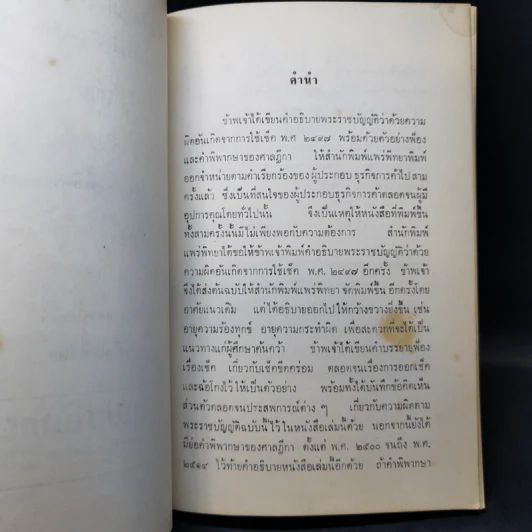 คำนำ
ข้าพเจ้าได้เขียนคำอธิบายพระราชบัญญัติว่าด้วยความ
ผิดอันเกิดจากการใช้เช็ค พ.ศ ๒๔๙๗ พร้อมด้วยตัวอย่างฟ้อง
และคำพิพากษาของศาลฎีกา ให้สำนักพิมพ์แพร่พิทยาพิมพ์
ออกจำหน่ายตามคำเรียกร้องของ ผู้ประกอบ ธุรกิจการค้าไป สาม
ครั้งแล้ว ซึ่งเป็นที่สนใจของผู้ประกอบธุรกิจการค้าตลอดจนผู้มี
อุปการคุณโดยทั่วไปนั้น จึงเป็นเหตุให้หนังสือที่พิมพ์ขึ้น
ทั้งสามครั้งนั้นมีไม่เพียงพอกับความต้องการ สำนักพิมพ์
แพร่พิทยาได้ขอให้ข้าพเจ้าพิมพ์คำอธิบายพระราชบัญญัติว่าด้วย
ความผิดอันเกิดจากการใช้เช็ค พ.ศ. ๒๔๙๗ อีกครั้ง ข้าพเจ้า
จึงได้ส่งต้นฉบับให้สำนักพิมพ์แพร่พิทยา จัดพิมพ์ขึ้น อีกครั้งโดย
อาศัยแนวเดิม แต่ได้อธิบายออกไป ให้กว้างขวางยิ่งขึ้น เช่น
อายุความร้องทุกข์ อายุความกระทำผิด เพื่อสะดวกที่จะได้เป็น
แนวทางแก่ผู้ศึกษาค้นคว้า ข้าพเจ้าได้เขียนคำบรรยายฟ้อง
เรื่องเช็ค เกี่ยวกับเช็คขีดคร่อม ตลอดจนเรื่องการออกเช็ค
และฉ้อโกงไว้ ให้เป็นตัวอย่าง พร้อมทั้งได้บันทึกข้อคิดเห็น
ส่วนตัวตลอดจนประสพการณ์ต่าง ๆ เกี่ยวกับความผิดตาม
พระราชบัญญัติฉบับนี้ไว้ ในหนังสือเล่มนี้ด้วย นอกจากนี้ยังได้
มีย่อคำพิพากษาของศาลฎีกา ตั้งแต่ พ.ศ. ๒๕๐๐ จนถึง พ.ศ.
๒๕๑๔ ไว้ท้ายคำอธิบายหนังสือเล่มนี้อีกด้วย ถ้าคำพิพากษา